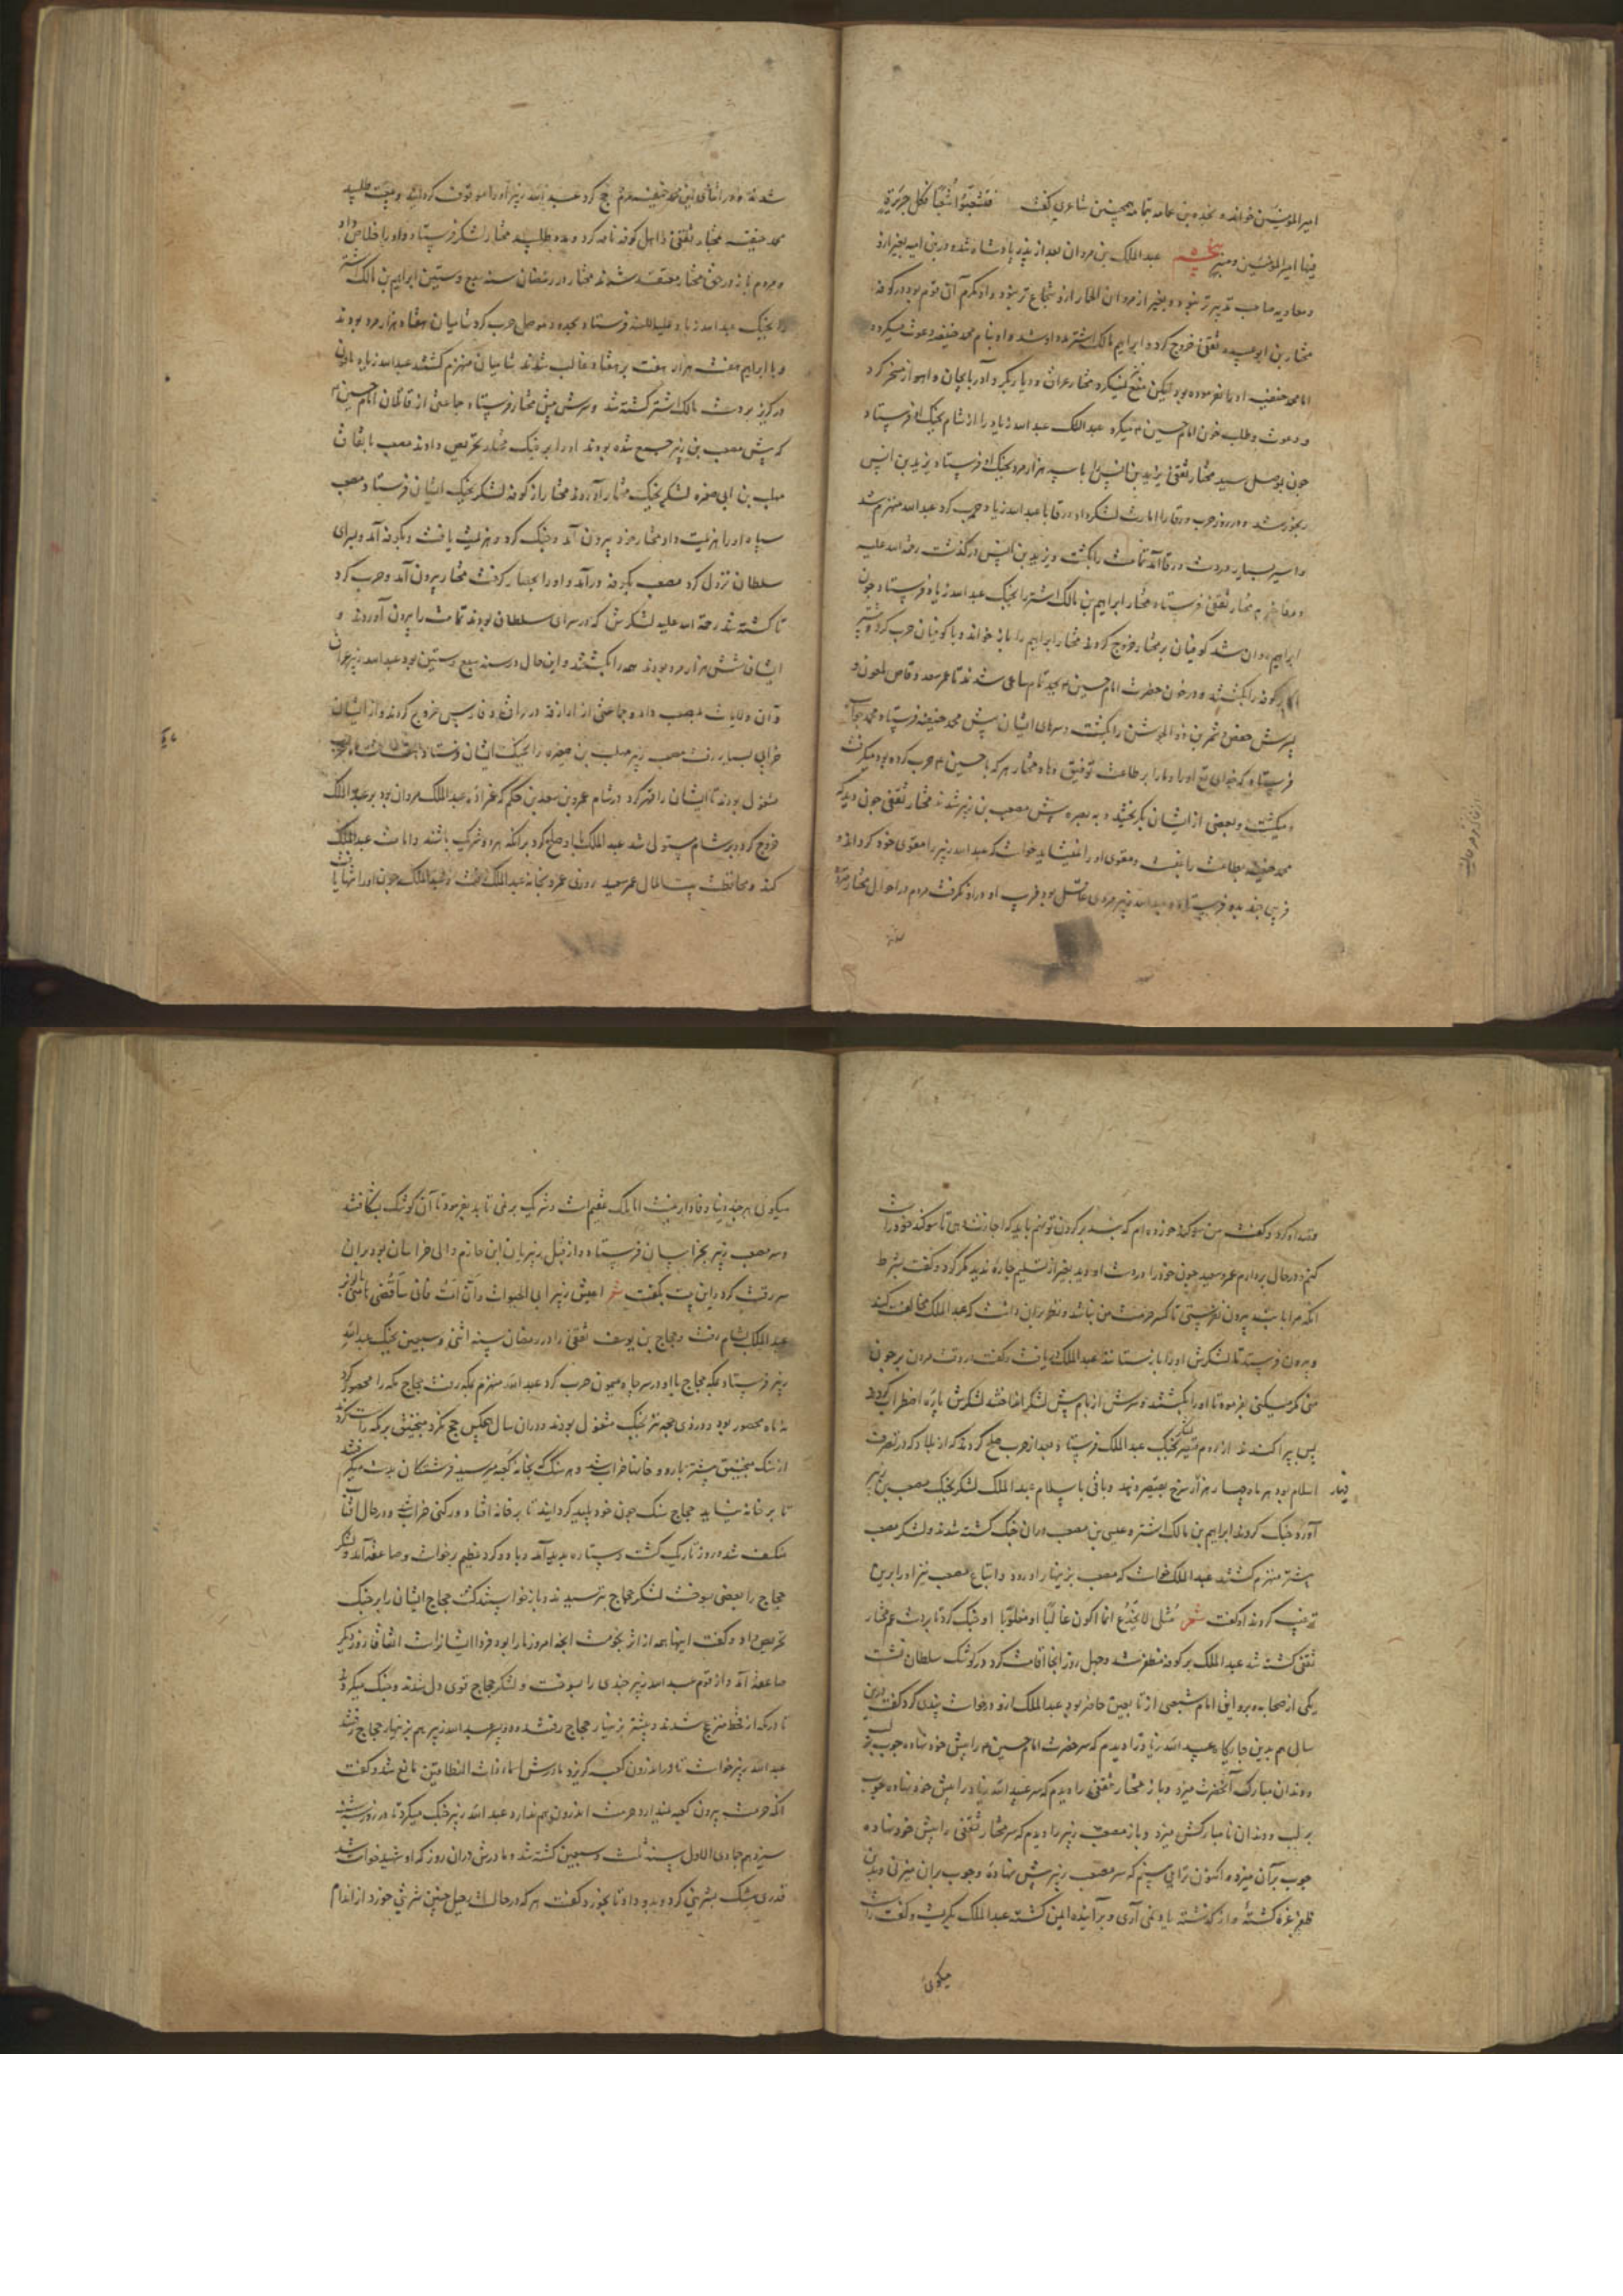 امیرالمؤمنین خواندند و نجده بن عامر بیمامه همچنین شاعری گفت فتشعبوا شعبا فکل جزیرة
فیها امیرالمؤمنین و منبر عبدالملک بن مروان بعد از پدر پادشاه شد و در بنی امیه بغیر ازو
و معاویه صاحب تدبیرتر نبود و بغیر از مروان الحمار ازو شجاع تر نبود و او مکرم آن قوم بود در کوفه
مختار بن ابو عبیده ثقفی خروج کرد و ابراهیم مالک اشتر مدد او شد و او بنام محمد حنفیه دعوت میکرد
اما محمد حنفیه او را نفرموده بود لیکن منع نمیکرد مختار عراق و دیاربکر و آذربایجان و اهواز مسخر کرد
و دعوت و طلب خون امام حسین ع میکرد عبدالملک عبدالله زیاد را از شام بجنگ او فرستاد
چون بموصل رسید مختار ثقفی یزید بن انس را با سه هزار مرد بجنگ او فرستاد یزید بن انس
رنجور شد و در روز حرب ورقا را امارت لشکر داد ورقا با عبدالله زیاد حرب کرد عبدالله منهزم شد
و اسیر بسیار در دست ورقا آمد تمامت را بکشت و یزید بن انس درگذشت رحمة الله علیه
مختار ثقفی فرستاد مختار ابراهیم بن مالک اشتر را بجنگ عبدالله زیاد فرستاد چون
ابراهیم روان شد کوفیان بر مختار خروج کردند مختار ابراهیم را باز خواند و با کوفیان حرب کرد
کوفه را بکشتند و در خون حضرت امام حسین ع بجد تمام ساعی شدند تا عمر سعد وقاص ملعون و
پسرش حفص و شمر بن ذوالجوشن را بکشت و سرهای ایشان پیش محمد حنفیه فرستاد محمد
فرستاد که خدای تع او را و ما را بر طاعت توفیق دهاد مختار هر که با حسین ع حرب کرده بود میگرفت
و میکشت و بعضی از ایشان بگریختند و به بصره پیش مصعب بن زبیر شدند مختار ثقفی چون دید که
محمد حنفیه بطاعت راغبست و مقوی او را نمیشاید خواست که عبدالله زبیر را مقوی خود گرداند
فریبی چند بدو فرستاد عبدالله زبیر مردی عاقل بود فریب او درو نگرفت مردم در احوال مختار متردد
شدند
شدند و در اثنای این محمد حنفیه عزم حج کرد عبدالله زبیر او را موقوف گردانید و بیعت طلبید
محمد حنفیه بمختار ثقفی و اهل کوفه نامه کرد و مدد طلبید مختار لشکر فرستاد و او را خلاص داد
و مردم باز در حق مختار معتقد شدند مختار در رمضان سنه سبع و ستین ابراهیم بن مالک اشتر
را بجنگ عبدالله زیاد علیه اللعنه فرستاد و بحدود موصل حرب کرد شامیان هفتاد هزار مرد بودند
و با ابراهیم هفت هزار هفت بر هفتاد غالب شدند شامیان منهزم گشتند عبدالله زیاد ملعون
در گریز بر دست مالک اشتر کشته شد و سرش پیش مختار فرستاد جماعتی از قاتلان امام حسین ع
که پیش مصعب بن زبیر جمع شده بودند او را بر جنگ مختار تحریص دادند مصعب باتفاق
مهلب بن ابی صفره لشکر بجنگ مختار آوردند مختار از کوفه لشکر بجنگ ایشان فرستاد مصعب
سپاه او را هزیمت داد مختار خود بیرون آمد و جنگ کرد و هزیمت یافت و بکوفه آمد و بسرای
سلطان نزول کرد مصعب بکوفه درآمد و او را بحصار گرفت مختار بیرون آمد و حرب کرد
تا کشته شد رحمة الله علیه لشکرش که در سرای سلطان بودند تمامت را بیرون آوردند و
ایشان شش هزار مرد بودند همه را بکشتند و این حال در سنه سبع و ستین بود عبدالله زبیر عراق
و آن ولایات بمصعب داد و جماعتی از ازارقه در عراق و فارس خروج کردند و از ایشان
خرابی بسیار رفت مصعب زبیر مهلب بن صفره را بجنگ ایشان فرستاد
مشغول بودند تا ایشان را قهر کرد و در شام عمرو بن سعد بن حکم که عمزاده عبدالملک مروان بود بر عبدالملک
خروج کرد و بر شام مستولی شد عبدالملک با او صلح کرد بر آنکه هر دو شریک باشند و امامت عبدالملک
کند و محافظت بیت المال عمر سعید روزی عمرو بخانه عبدالملک رفت عبدالملک چون او را تنها یافت
و قید او کرد و گفت من سوگند خورده ام که بند بر گردن تو نهم باید که اجازت دهی تا سوگند خود راست
کنم و در حال بردارم عمرو سعید چون خود را در دست او دید بغیر از تسلیم چاره ندید مکر کرد و گفت بشرط
آنکه مرا با بند بیرون نفرستی تا کسر حرمت من نباشد و نظر بران داشت که عبدالملک مخالفت کند
و بیرون فرستد تا لشکرش او را باز ستانند عبدالملک دریافت و گفت در وقت مردن بر چون
منی مکر میکنی بفرمود تا او را بکشتند و سرش از بام پیش لشکر انداختند لشکرش پاره اضطراب کردند
پس پراکندند از روم قیصر لشکر بجنگ عبدالملک فرستاد بعد از حرب صلح کردند که از بلاد که در تصرف
اسلام بود هر ماه چهار هزار دینار سرخ بقیصر دهند و باقی با اسلام عبدالملک لشکر بجنگ مصعب بن زبیر
آورد جنگ کردند ابراهیم بن مالک اشتر و عیسی بن مصعب در آن جنگ کشته شدند و لشکر مصعب
بیشتر منهزم گشتند عبدالملک خواست که مصعب بزینهار او رود و اتباع مصعب نیز او را برین
ترغیب کردند او گفت شعر مثلی لا یخدع انما اکون غالبا او مغلوبا و جنگ کرد تا بر دست عم مختار
ثقفی کشته شد عبدالملک بر کوفه مظفر شد و چهل روز آنجا اقامت کرد در کوشک سلطان نشست
یکی از صحابه و بروایتی امام شعبی از تابعین حاضر بود عبدالملک ازو درخواست پندی کرد گفت درین
سال هم بدین جایگاه عبیدالله زیاد را دیدم که سر حضرت امام حسین ع را پیش خود نهاده چوب بر لب
و دندان مبارک آنحضرت میزد و باز مختار ثقفی را دیدم که سر عبیدالله زیاد را پیش خود نهاده چوب
بر لب و دندان نامبارکش میزد و باز مصعب زبیر را دیدم که سر مختار ثقفی را پیش خود نهاده
چوب برآن میزد و اکنون ترا می بینم که سر مصعب زبیر پیش نهاده و چوب بران میزنی و بدین
ظفر غره گشته و از گذشته یاد نمی آری و بر آینده ایمن گشته عبدالملک بگریست و گفت راست
میگوئی
میگوئی هر چند دنیا وفادار نیست اما ملک عقیم است و شریک بر نمی تابد بفرمود تا آن کوشک بشکافتند
و سر مصعب زبیر بخراسان فرستاد و از قبل زبیریان ابن خازم والی خراسان بود بران
سر رقت کرد و این بیت بگفت شعر
عبدالملک بشام رفت و حجاج بن یوسف ثقفی را در رمضان سنه اثنی و سبعین بجنگ عبدالله
زبیر فرستاد بمکه حجاج با او در سر چاه میمون حرب کرد عبدالله منهزم بمکه رفت حجاج مکه را محصور کرد
نه ماه محصور بود و در ذی حجه نیز بجنگ مشغول بودند و دران سال هیچکس حج نکرد منجنیق بر مکه راست کرد
از سنگ منجنیق بیشتر بارو و خانها خراب شد و هر سنگ که بخانه کعبه میرسید فرشتگان بدست میگرفتند
تا بر خانه نیاید حجاج سنگ چون خود پلید گردانید تا بر خانه افتاد و رکنی خراب شد و در حال آفتاب
منکسف شد و روز تاریک گشت و ستاره پدید آمد و باد و گرد عظیم برخواست و صاعقه آمد و لشکر
حجاج را بعضی بسوخت لشکر حجاج بترسیدند و باز خواستند گشت حجاج ایشان را بر جنگ
تحریص داد و گفت اینها همه از اثر نجومست آنچه امروز ما را بود فردا ایشانراست اتفاقا روز دیگر
صاعقه آمد و از قوم عبدالله زبیر چندی را بسوخت و لشکر حجاج قوی دل شدند و جنگ میکردند
تا در مکه از قحط منزعج شدند و بیشتر بزینهار حجاج رفتند و دو پسر عبدالله زبیر هم بزینهار حجاج رفتند
عبدالله زبیر خواست تا در اندرون کعبه گریزد مادرش اسماء ذات النطاقین مانع شد و گفت
آنکه حرمت بیرون کعبه نمیدارد حرمت اندرون هم ندارد عبدالله زبیر جنگ میکرد تا در روز سه شنبه
سیزدهم جمادی الاول سنه ثلث و سبعین کشته شد و مادرش دران روز که او شهید خواست شد
قدری مشک بشربتی کرد و بدو داد تا بخورد و گفت هر که در حالت رحیل چنین شربتی خورد از اندام